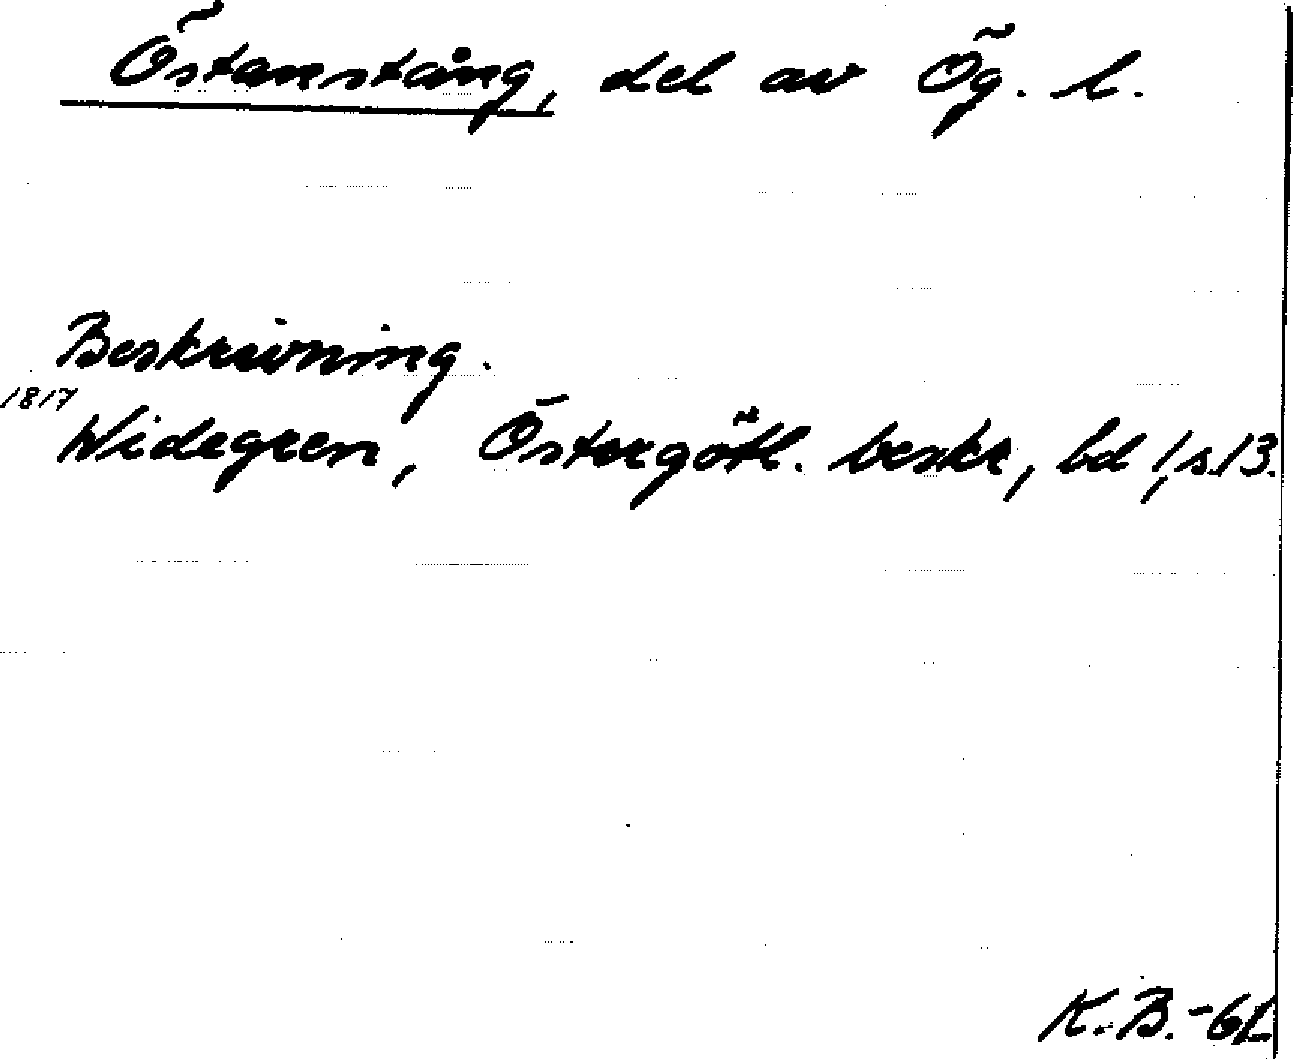 Östanstång, del av Ög. l.
Beskrivning.
1817
Widegren, Östergötl. beskr, bd 1, s. 13.
K. B. -61.